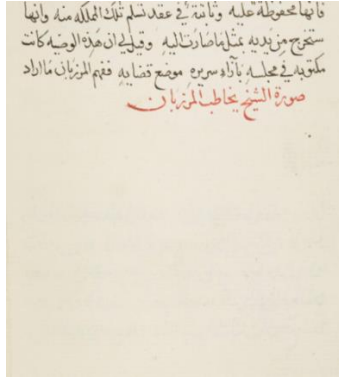 فانها محفوظة عليه وثابتة في عقد تسلم تلك المملكه منه وانها
ستخرج من يديه بمثل ما صارت اليه وقيل لي ان هذه الوصيه كانت
مكتوبه في مجلسه بآزاء سريره موضع قضايه ففهم المرزبان ما اراد
صورة الشيخ يخاطب المرزبان